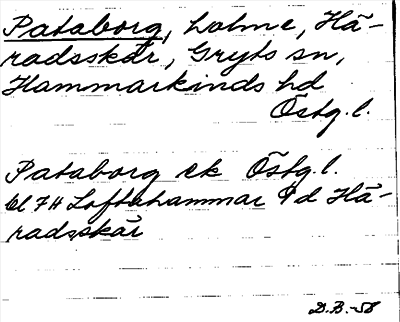 Pataborg, holme, Hä-
radsskär, Gryts sn,
Hammarkinds hd
Östg. l.
Pataborg ek Östg. l.
bl 7H Loftahammar 9d Hä-
radsskär
D.B.-58